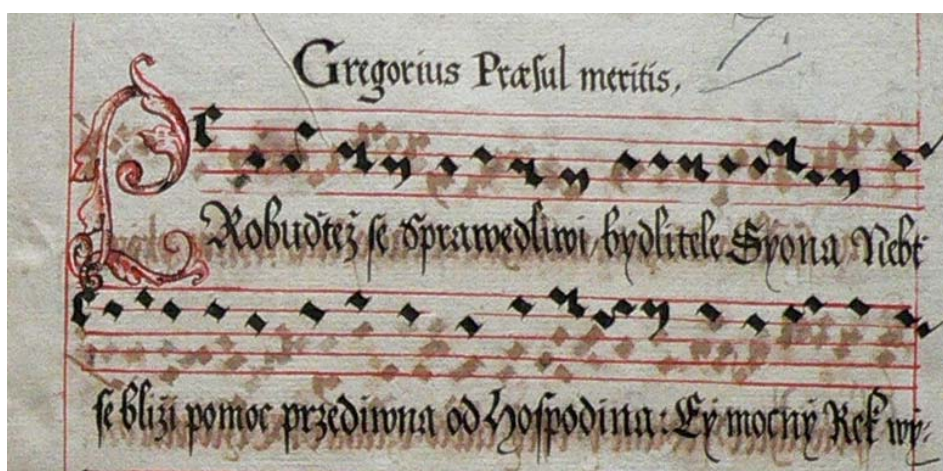 Gregorius Præſul meritis,
7.
PRobuďtež ſe Sprawedliwi bydlitele Syona Nebť
ſe bliži pomoc przediwna od Hoſpodina: Ey mocný Rek wy-